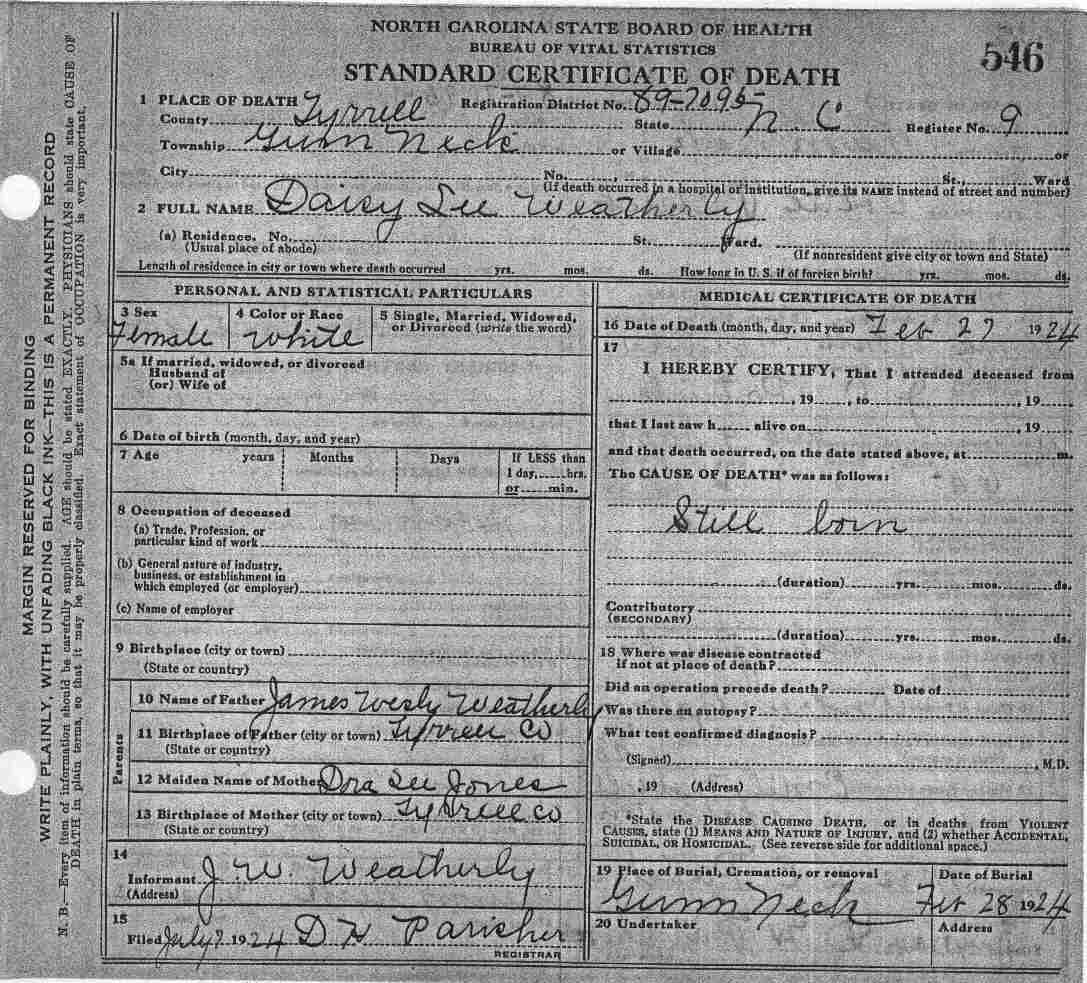 NORTH CAROLINA STATE BOARD OF HEALTH
BUREAU OF VITAL STATISTICS
STANDARD CERTIFICATE OF DEATH
546
1 PLACE OF DEATH
County Tyrrell Registration District No. 89-7095 State N. C Register No. 9
Township Gunn Neck or Village or
City No. St., Ward
(If death occurred in a hospital or institution, give its NAME instead of street and number)
2 FULL NAME Daisy Lee Weatherly
(a) Residence. No. St. Ward.
(Usual place of abode) (If nonresident give city or town and State)
Length of residence in city or town where death occurred yrs. mos. ds. How long in U. S. if of foreign birth? yrs. mos. ds.
PERSONAL AND STATISTICAL PARTICULARS
3 Sex 4 Color or Race 5 Single, Married, Widowed,
or Divorced (write the word)
Female White
5a If married, widowed, or divorced
Husband of
(or) Wife of
6 Date of birth (month, day, and year)
7 Age years Months Days If LESS than
1 day, hrs.
or min.
8 Occupation of deceased
(a) Trade, Profession, or
particular kind of work
(b) General nature of industry,
business, or establishment in
which employed (or employer)
(c) Name of employer
9 Birthplace (city or town)
(State or country)
Parents
10 Name of Father James Wesly Weatherly
11 Birthplace of Father (city or town) Tyrrell Co
(State or country)
12 Maiden Name of Mother Dra Lee Jones
13 Birthplace of Mother (city or town) Tyrrell Co
(State or country)
14
Informant J. W. Weatherly
(Address)
15
Filed July 7 1924 D H Parisher
REGISTRAR
MEDICAL CERTIFICATE OF DEATH
16 Date of Death (month, day, and year) Feb 27 1924
17
I HEREBY CERTIFY, That I attended deceased from
, 19 , to , 19
that I last saw h alive on , 19
and that death occurred, on the date stated above, at m.
The CAUSE OF DEATH* was as follows:
Still born
(duration) yrs. mos. ds.
Contributory
(SECONDARY)
(duration) yrs. mos. ds.
18 Where was disease contracted
if not at place of death?
Did an operation precede death? Date of
Was there an autopsy?
What test confirmed diagnosis?
(Signed) , M.D.
, 19 (Address)
*State the DISEASE CAUSING DEATH, or in deaths from VIOLENT
CAUSES, state (1) MEANS AND NATURE OF INJURY, and (2) whether ACCIDENTAL,
SUICIDAL, OR HOMICIDAL. (See reverse side for additional space.)
19 Place of Burial, Cremation, or removal Date of Burial
Gunn Neck Feb 28 1924
20 Undertaker Address
MARGIN RESERVED FOR BINDING
WRITE PLAINLY, WITH UNFADING BLACK INK—THIS IS A PERMANENT RECORD
N. B.—Every item of information should be carefully supplied. AGE should be stated EXACTLY. PHYSICIANS should state CAUSE OF
DEATH in plain terms, so that it may be properly classified. Exact statement of OCCUPATION is very important.